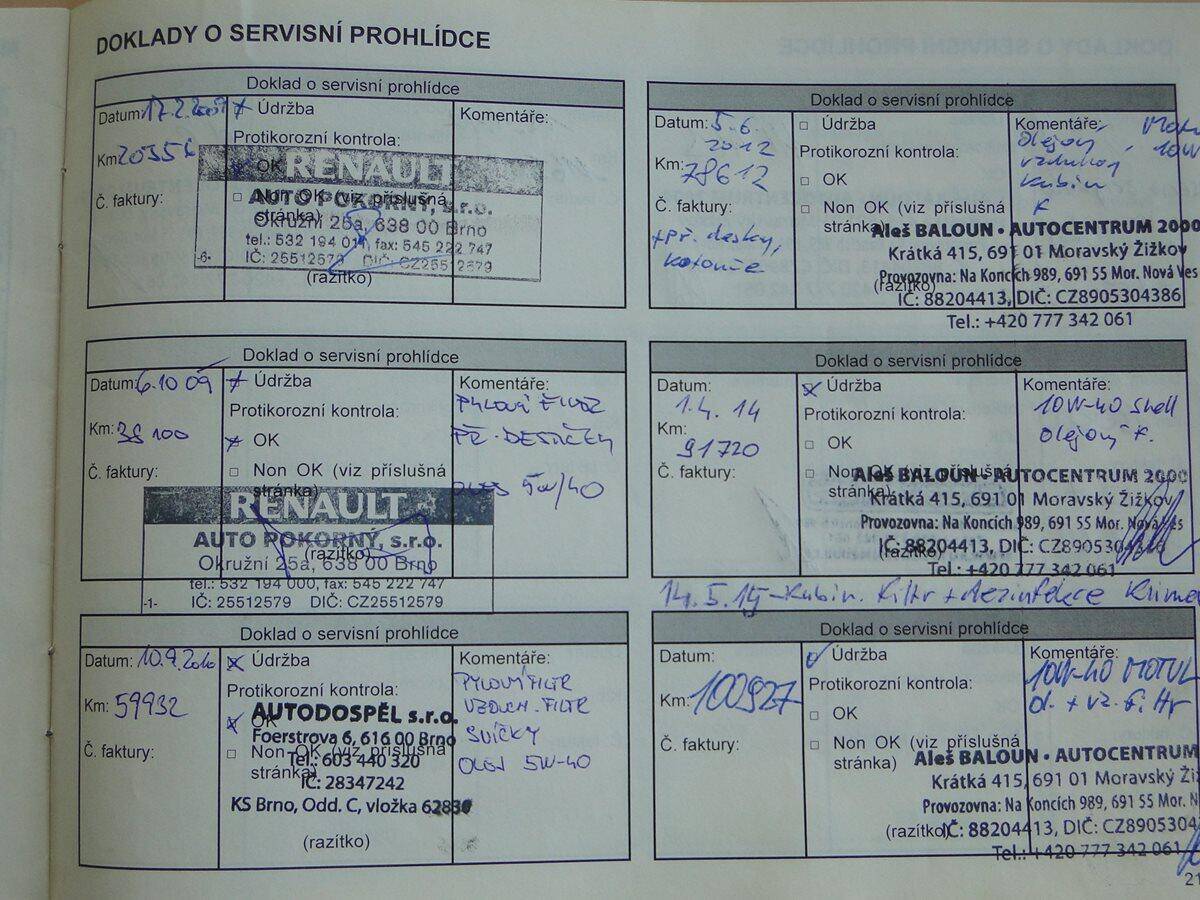 DOKLADY O SERVISNÍ PROHLÍDCE
Doklad o servisní prohlídce
Datum: 17.2.
Údržba
Komentáře:
Protikorozní kontrola:
Km 20356
OK
Č. faktury:
Non OK (viz příslušná
stránka)
RENAULT
AUTO POKORNÝ, s.r.o.
Okružní 25a, 638 00 Brno
tel.: 532 194 011, fax: 545 222 747
-6- IČ: 25512579 DIČ: CZ25512579
(razítko)
Doklad o servisní prohlídce
Datum: 6.10 09
Údržba
Komentáře:
Km: 38 100
Protikorozní kontrola:
OK
PYLOVÝ
PŘ. DESTIČKY
5W/40
Č. faktury:
Non OK (viz příslušná
stránka)
RENAULT
AUTO POKORNÝ, s.r.o.
(razítko)
Okružní 25a, 638 00 Brno
tel.: 532 194 000, fax: 545 222 747
-1- IČ: 25512579 DIČ: CZ25512579
Doklad o servisní prohlídce
Datum: 10.9.2010
Údržba
Komentáře:
Km: 59932
Protikorozní kontrola:
OK
PYLOVÝ FILTR
VZDUCH. FILTR
SVÍČKY
OLEJ 5W-40
Č. faktury:
Non OK (viz příslušná
stránka)
AUTODOSPĚL s.r.o.
Foerstrova 6, 616 00 Brno
Tel.: 603 440 320
IČ: 28347242
KS Brno, Odd. C, vložka
(razítko)
Doklad o servisní prohlídce
Datum: 5.6.
2012
Údržba
Komentáře:
Km: 78612
Protikorozní kontrola:
OK
olejový, 10W
vzduchový
kabin
F
Č. faktury:
Non OK (viz příslušná
stránka)
+př. desky,
kotouče
Aleš BALOUN • AUTOCENTRUM 2000
Krátká 415, 691 01 Moravský Žižkov
Provozovna: Na Koncích 989, 691 55 Mor. Nová Ves
(razítko)
IČ: 88204413, DIČ: CZ8905304386
Tel.: +420 777 342 061
Doklad o servisní prohlídce
Datum:
1.4. 14
Údržba
Komentáře:
Km:
91720
Protikorozní kontrola:
OK
10W-40 Shell
olejový F.
Č. faktury:
Non OK (viz příslušná
stránka)
Aleš BALOUN • AUTOCENTRUM 2000
Krátká 415, 691 01 Moravský Žižkov
Provozovna: Na Koncích 989, 691 55 Mor. Nová Ves
(razítko)
IČ: 88204413, DIČ: CZ8905304386
Tel.: +420 777 342 061
14.5.15 - Kabin. Filtr + dezinfekce Klima
Doklad o servisní prohlídce
Datum:
Údržba
Komentáře:
Km: 100927
Protikorozní kontrola:
OK
10W-40 MOTUL
ol. + vz. filtr
Č. faktury:
Non OK (viz příslušná
stránka)
Aleš BALOUN • AUTOCENTRUM
Krátká 415, 691 01 Moravský Ži
Provozovna: Na Koncích 989, 691 55 Mor. N
(razítko)
IČ: 88204413, DIČ: CZ8905304
Tel.: +420 777 342 061
21